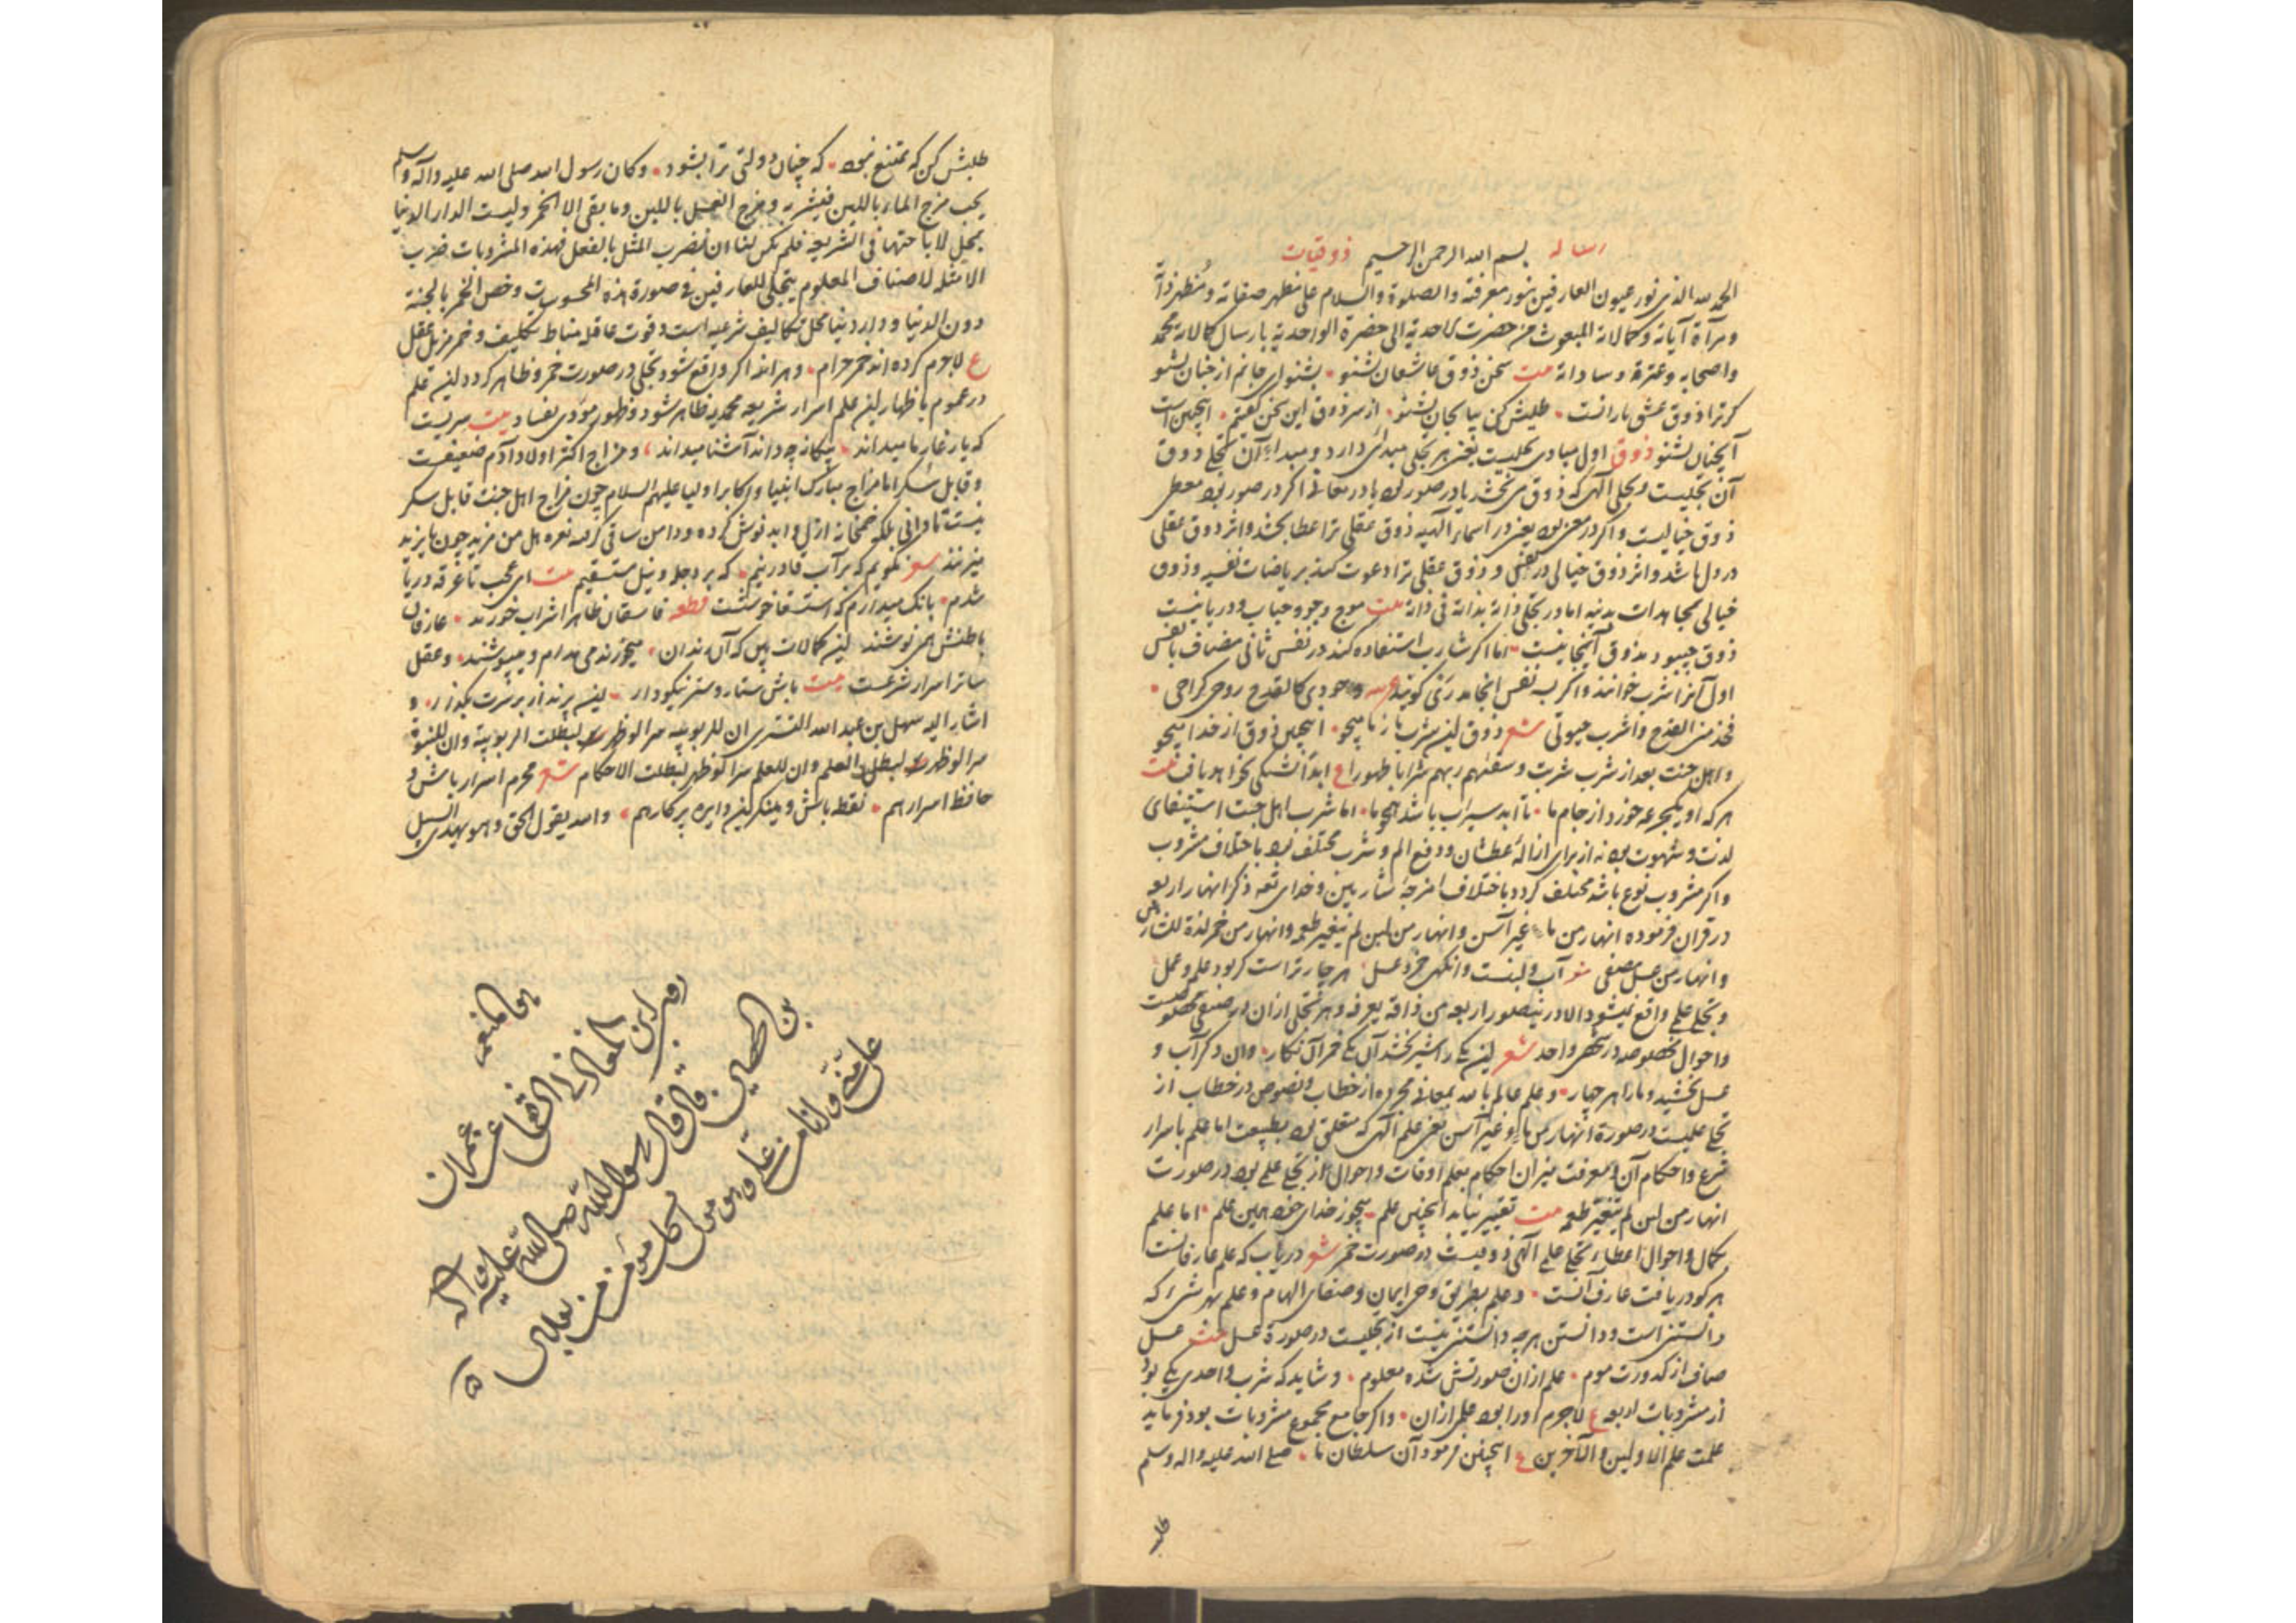 رساله بسم الله الرحمن الرحیم ذوقیات
الحمد لله الذی نور عیون العارفین بنور معرفته والصلوة والسلام علی مظهر صفاته ومظهر ذاته
ومرآة آیاته وکمالاته المبعوث من حضرت الاحدیة الی حضرة الواحدیة بارسال کمالاته محمد
واصحابه وعترته وساداته بیت سخن ذوق عاشقان بشنو بشنو ای جانم از جنان بشنو
کر ترا ذوق عشق یارانست طلبش کن بیا بجان بشنو از سر ذوق این سخن کفتیم اینچنین است
آنچنان بشنو ذوق اول مبادی تجلیست یعنی هر تجلی مبدائی دارد ومبداء آن تجلی ذوق
آن تجلیست وتجلی الهی که ذوق می بخشد یا در صور بود یا در معانی اکر در صور بود معطی
ذوق خیالیست واکر در معنی بود یعنی در اسماء الهیه ذوق عقلی ترا عطا بخشد واثر ذوق عقلی
در دل باشد واثر ذوق خیالی در نفس وذوق عقلی ترا دعوت کند بریاضات نفسیه وذوق
خیالی بمجاهدات بدنیه اما در تجلی ذاته بذاته فی ذاته بیت موج وجو وحباب ودریا نیست
ذوق چبود مذوق آنجا نیست اما اکر شارب استفاده کند در نفس ثانی مضاف با نفس
اول آنرا شرب خوانند واکر به نفس انجامد ری کویند وجودی کالقدح روحی کراحی
فخذ منی القدح واشرب حیوتی شعر ذوق این شرب باز ما میجو اینچنین ذوق از خدا میجو
واهل جنت بعد از شرب شربت وسقیهم ربهم شرابا طهورا ع ابدا تشنکی نخواهد یافت بیت
هر که او یکجرعه خورد از جام ما تا ابد سیراب باشد همچو ما اما شرب اهل جنت استیفای
لذت وشهوت بود نه از برای ازاله عطشان ودفع الم وشرب مختلف بود باختلاف مشروب
واکر مشروب نوع باشد مختلف کردد باختلاف امزجه شاربین وخدای تعه ذکر انهار اربعه
در قران فرموده انهار من ماء غیر آسن وانهار من لبن لم یتغیر طعمه وانهار من خمر لذة للشاربین
وانهار من عسل مصفی آب ولبنست وانکهی خمر وعسل هر چار تراست کر بود علم وعمل
وتجلی علمی واقع نمیشود الا درینصور اربعه من ذاقه یعرفه وهر تجلی ازان در صنفی مخصوصست
واحوال مخصوصه در شخص واحد شعر این یکی را شیر بخشد آن یکی خمر آن نکار وان دکر آب و
عسل بخشید ومارا هر چهار وعلم عالم بالله بمعانی مجرده از خطاب ونصوص در خطاب از
تجلی علمیست در صورة انهار من ماء غیر آسن یعنی علم الهی که متعلق بود بطبیعت اما علم باسرار
شرع واحکام آن ومعرفت میزان احکام بعلم اوقات واحوال از تجلی علمی بود در صورت
انهار من لبن لم یتغیر طعمه بیت تغییر نیابد اینچنین علم میجوز خدای خود همین علم اما علم
بکمال واحوال اعطاء تجلی علم الهی ذوقیست در صورت خمر شعر دریاب که علم عارفانست
هر کو دریافت عارف آنست وعلم بطریق وحی ایمان وصفای الهام وعلم بهر شئ که
دانستنی است ودانستن هر چه دانستنی نیست از تجلیست در صورة عسل بیت عسل
صاف از کدورت موم علم ازان صورتش شده معلوم وشاید که شرب واحدی یکی بود
از مشروبات اربعه ع لاجرم اورا بود علمی ازان واکر جامع مجموع مشروبات بود فرماید
علمت علم الاولین والآخرین ع اینچنین فرمود آن سلطان ما صلی الله علیه واله وسلم
طلبـ
طلبش کن که ممتنع نبود که چنان دولتی ترا بشود وکان رسول الله صلی الله علیه وآله وسلم
یحب مزج الماء باللبن فیشربه ومزج العسل باللبن وما بقی الا الخمر ولیست الدار الدنیا
بمحل لاباحتها فی الشریعه فلم یکن لنا ان نضرب المثل بالفعل فهذه المشروبات ضرب
الامثله لاصناف المعلوم یتجلی للعارفین فی صورة هذه المحسوسات وخص الخمر بالجنة
دون الدنیا ودار دنیا محل تکالیف شرعیه است وقوت عاقله مناط تکلیف وخمر مزیل عقل
ع لاجرم کرده اند خمر حرام وهر انداکر واقع شود تجلی در صورت خمر وظاهر کردد این علم
در عموم باظهار این علم اسرار شریعه محمدیه ظاهر شود وظهور مودی بفساد بیت سریست
که یار غار ما میداند بیکانه چه داند آشنا میداند ومزاج اکثر اولاد آدم ضعیفست
وقابل سکر اما مزاج مبارک انبیا واکابر اولیا علیهم السلام چون مزاج اهل جنت قابل سکر
نیست تا دانی بلکه خمخانه ازل وابد نوش کرده ودامن ساقی کرفته نعره هل من مزید چون بایزید
میزنند شعر نکویم که بر آب قادر نیم که بر دجله ونیل مستسقیم بیت ای عجب تا غرقه دریا
شدم بانک میدارم که استسقا خوشست قطعه فاسقان ظاهرا شراب خورند عارفان
باطنش همی نوشند این کمالات بین که آن رندان میخورند می مدام ومیپوشند وعقل
ساتر اسرار شرعست بیت باش ستار وستر نیکو دار این پرند از برسرت بکذار و
اشار الیه سهل بن عبد الله التستری ان للربوبیه سر لو ظهر لبطلت الربوبیة وان للنبوة
سر لو ظهر لبطل العلم وان للعلم سرا لو ظهر لبطلت الاحکام شعر محرم اسرار باش و
حافظ اسرار هم نقطه باش ومینکر این دایره پرکار هم والله یقول الحق وهو یهدی السبیل
هو المنعم
روی ابن المغازلی الشافعی عن عمران
بن الحصین قال قال رسول الله صلی الله علیه وآله
علی منی وانا من علی وهو ولی کل مؤمن من بعدی